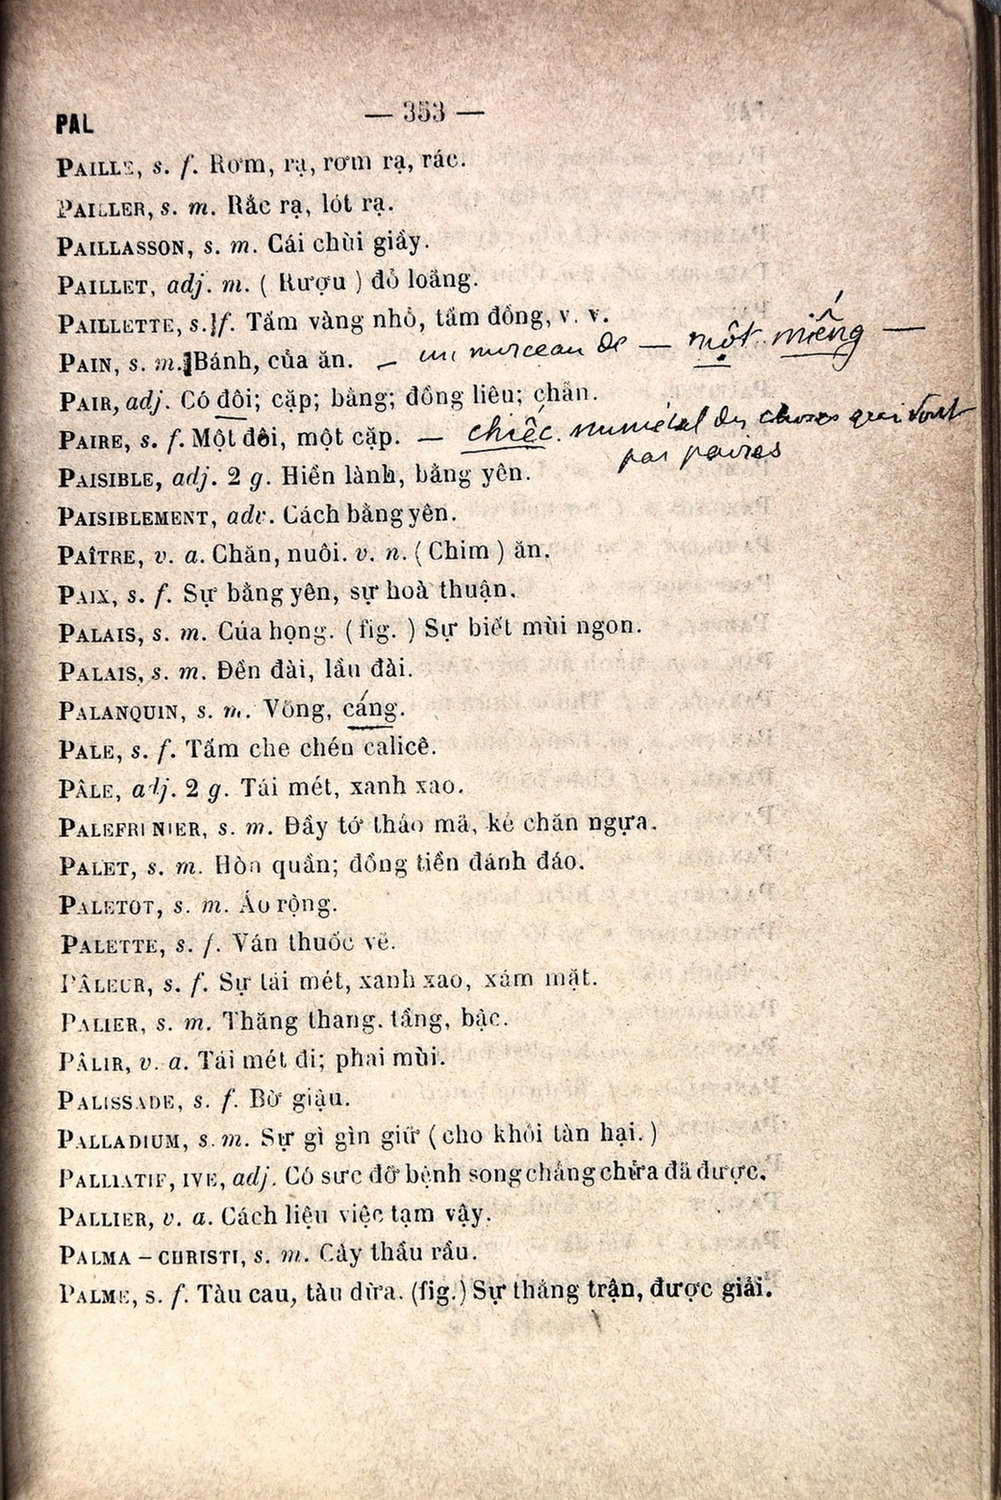 PAL
— 353 —
PAILLE, s. f. Rơm, rạ, rơm rạ, rác.
PAILLER, s. m. Rắc rạ, lót rạ.
PAILLASSON, s. m. Cái chùi giầy.
PAILLET, adj. m. ( Rượu ) đỏ loãng.
PAILLETTE, s. f. Tấm vàng nhỏ, tấm đồng, v. v.
PAIN, s. m. Bánh, của ăn. — un morceau de — một miếng —
PAIR, adj. Có đôi; cặp; bằng; đồng liêu; chẵn.
PAIRE, s. f. Một đôi, một cặp. — chiếc. numéral des choses qui vont
par paires
PAISIBLE, adj. 2 g. Hiền lành, bằng yên.
PAISIBLEMENT, adv. Cách bằng yên.
PAÎTRE, v. a. Chăn, nuôi. v. n. ( Chim ) ăn.
PAIX, s. f. Sự bằng yên, sự hoà thuận.
PALAIS, s. m. Cúa họng. ( fig. ) Sự biết mùi ngon.
PALAIS, s. m. Đền đài, lầu đài.
PALANQUIN, s. m. Võng, cáng.
PALE, s. f. Tấm che chén calicê.
PÂLE, adj. 2 g. Tái mét, xanh xao.
PALEFRENIER, s. m. Đầy tớ tháo mã, kẻ chăn ngựa.
PALET, s. m. Hòn quần; đồng tiền đánh đáo.
PALETOT, s. m. Áo rộng.
PALETTE, s. f. Ván thuốc vẽ.
PÂLEUR, s. f. Sự tái mét, xanh xao, xám mặt.
PALIER, s. m. Thăng thang. tầng, bậc.
PÂLIR, v. a. Tái mét đi; phai mùi.
PALISSADE, s. f. Bờ giậu.
PALLADIUM, s. m. Sự gì gìn giữ ( cho khỏi tàn hại. )
PALLIATIF, IVE, adj. Có sức đỡ bệnh song chẳng chữa đã được.
PALLIER, v. a. Cách liệu việc tạm vậy.
PALMA – CHRISTI, s. m. Cây thầu rầu.
PALME, s. f. Tàu cau, tàu dừa. (fig.) Sự thắng trận, được giải.